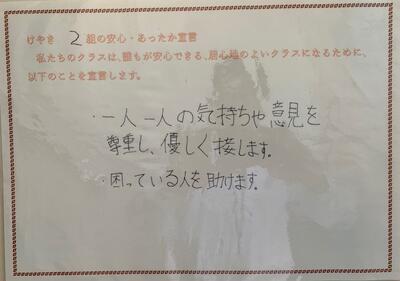 けやき 2 組の安心・あったか宣言
私たちのクラスは、誰もが安心できる、居心地のよいクラスになるために、
以下のことを宣言します。
・一人一人の気持ちや意見を
尊重し、優しく接します。
・困っている人を助けます。